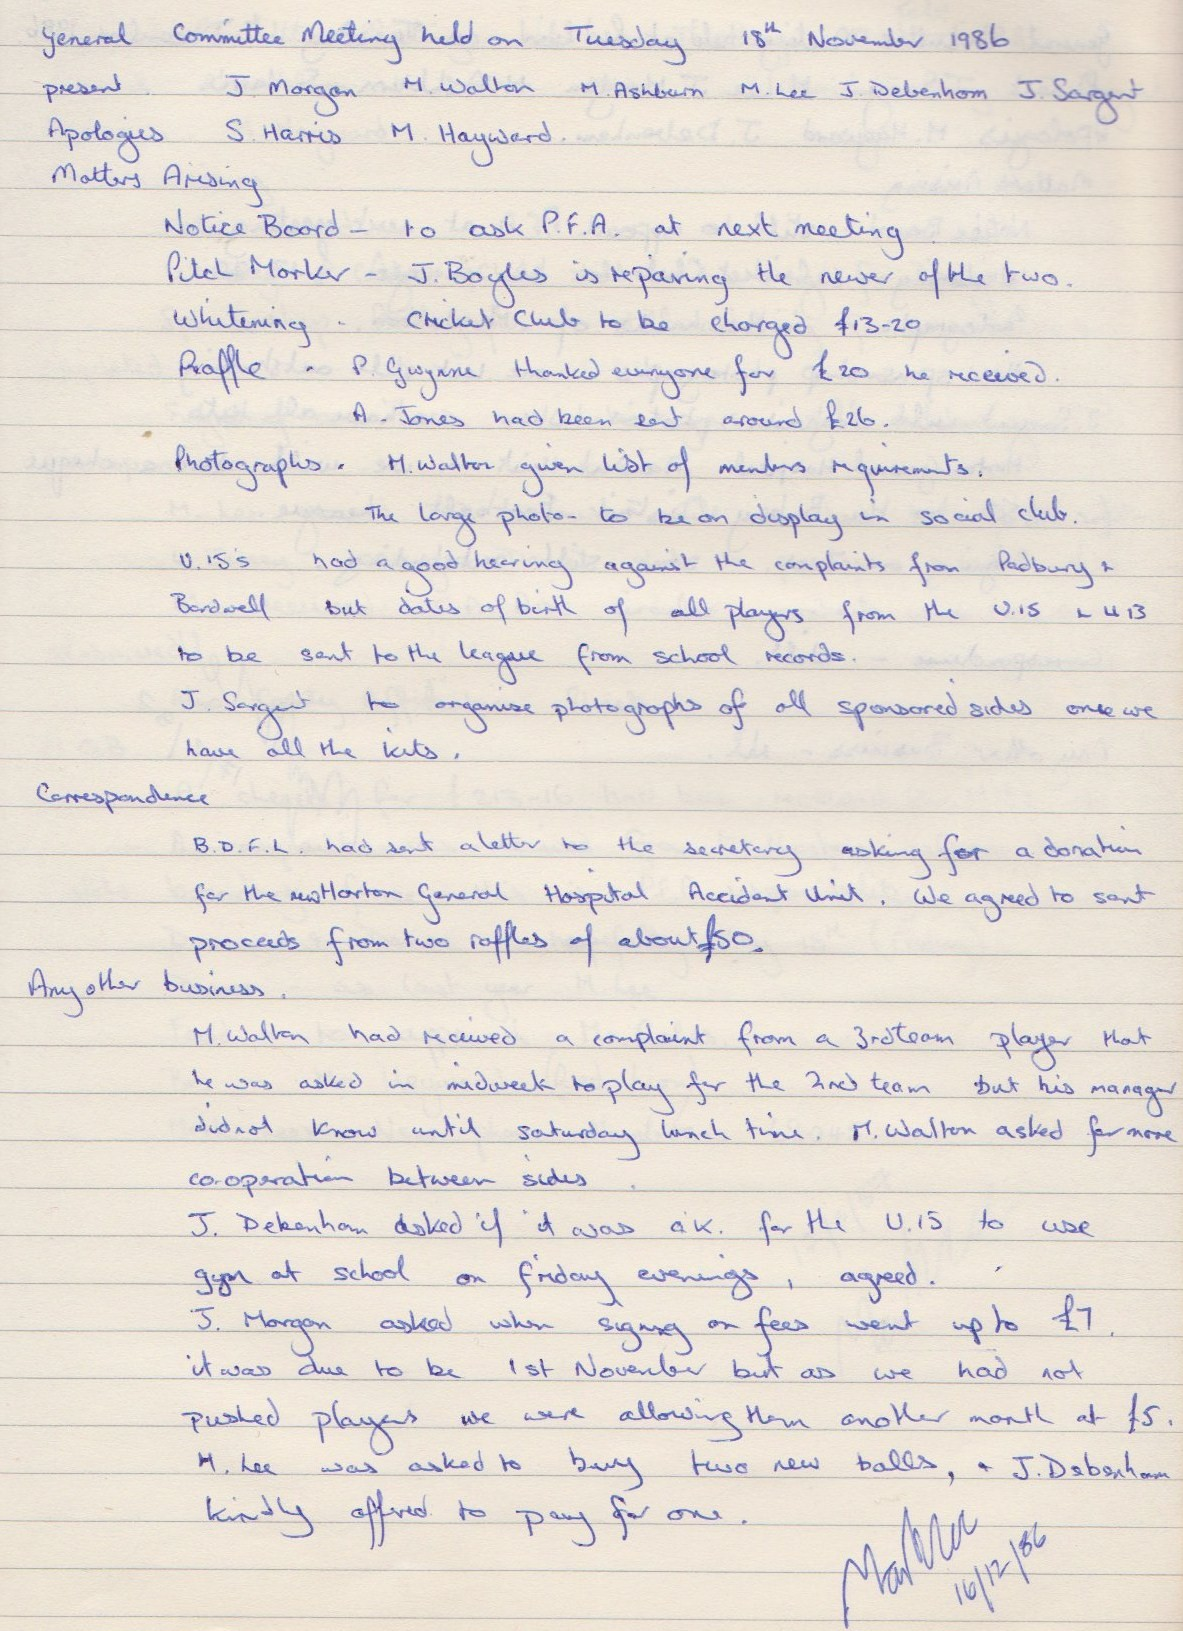 General Committee Meeting held on Tuesday 18th November 1986
present. J. Morgan M. Walton M. Ashburn M. Lee J. Debenham J. Sargent
Apologies S. Harris M. Hayward.
Matters Arising
Notice Board - to ask P.F.A. at next meeting.
Pitch Marker - J. Boyles is repairing the newer of the two.
Whitening - Cricket Club to be charged £13-20
Raffle - P. Gwynne thanked everyone for £20 he received.
A. Jones had been sent around £26.
Photographs. M. Walton given list of members requirements.
The large photo- to be on display in social club.
U.15's had a good hearing against the complaints from Padbury +
Bardwell but dates of birth of all players from the U.15 + U 13
to be sent to the league from school records.
J. Sargent to organise photographs of all sponsored sides once we
have all the kits.
Correspondence
B.D.F.L. had sent a letter to the secretary asking for a donation
for the new Horton General Hospital Accident Unit. We agreed to sent
proceeds from two raffles of about £50.
Any other business.
M. Walton had received a complaint from a 3rd team player that
he was asked in midweek to play for the 2nd team but his manager
did not know until saturday lunch time. M. Walton asked for more
co-operation between sides.
J. Debenham asked if it was o.k. for the U.15 to use
gym at school on friday evenings, agreed.
J. Morgan asked when signing on fees went up to £7.
it was due to be 1st November but as we had not
pushed players we were allowing them another month at £5.
M. Lee was asked to buy two new balls, + J. Debenham
kindly offered to pay for one.
16/12/86